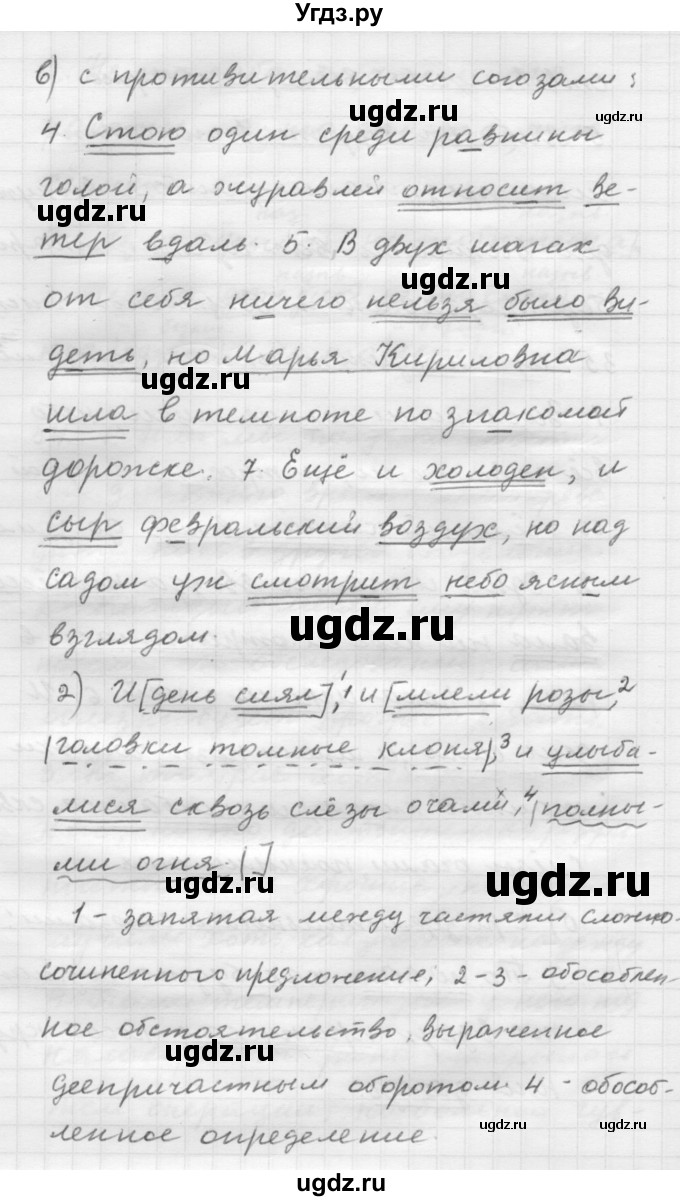 Угдз.ру
в) с противительными союзами:
4. Стою один среди равнины
голой, а журавлей относит ве-
тер вдаль. 5. В двух шагах
от себя ничего нельзя было ви-
деть, но Марья Кириловна
шла в темноте по знакомой
дорожке. 7. Ещё и холоден, и
сыр февральский воздух, но над
садом уж смотрит небо ясным
взглядом.
2) И [день сиял],¹ и [млели розы,²
|головки томные клоня|,³ и улыба-
лися сквозь слёзы очами,⁴ |полны-
ми огня.|]
1 - запятая между частями сложно-
сочиненного предложение; 2-3 - обособлен-
ное обстоятельство, выраженное
деепричастным оборотом. 4 - обособ-
ленное определение.
ugdz.ru
ugdz.ru
ugdz.ru
ugdz.ru
ugdz.ru
ugdz.ru
ugdz.ru
ugdz.ru
ugdz.ru
ugdz.ru
ugdz.ru
ugdz.ru
ugdz.ru
ugdz.ru